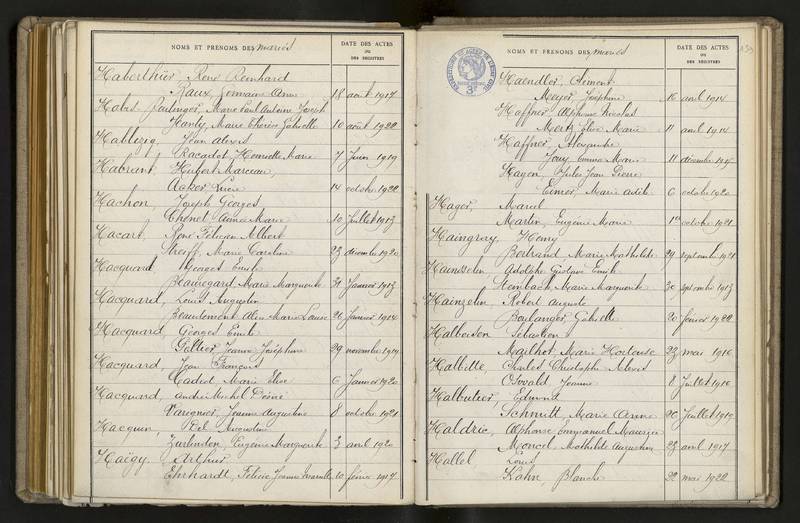 NOMS ET PRÉNOMS DES mariés
DATE DES ACTES
OU
DES REGISTRES
Haberthür, René Reinhard
Raux, Germaine Anna 18 août 1917
Habet Marie Paul Antoine Joseph
Hanty, Marie Thérèse Gabrielle 10 août 1922
Hablizig, Jean Alexis
Racadot, Henriette Marie 7 Juin 1919
Habrant, Hubert Marceau
Acker, Lucie 14 octobre 1922
Hachon, Joseph Georges
Chonet Aimée Marie 10 Juillet 1913
Hacart, René Félicien Albert
Streiff, Marie Caroline 23 décembre 1920
Hacquard, Georges Emile
Beauregard Marie Marguerite 31 Janvier 1913
Hacquard, Louis Augustin
Marie Louise 26 Janvier 1914
Hacquard Georges Emile
Galtier, Jeanne Joséphine 29 novembre 1919
Hacquard, Jean François
Cadiot Marie Elise 6 Janvier 1920
Hacquard, André Michel Désiré
Varignier, Jeanne Augustine 8 octobre 1921
Hacquin, Augustine
Zurlinden, Eugénie Marguerite 3 avril 1920
Haëgy, Arthur
Ehrhardt, Félicie Jeanne 10 février 1917
NOMS ET PRÉNOMS DES mariés
DATE DES ACTES
OU
DES REGISTRES
3F
Haendler, Clément
Meyer, Joséphine 16 avril 1914
Haffner, Alphonse Nicolas
Mertz, Elise Marie 11 avril 1914
Haffner, Alexandre
Jouy Emma Marie 11 décembre
Hagen, Jules Jean Pierre
Eimer, Marie 6 octobre 1920
Hager, Marcel
Martin, Eugénie Marie octobre 1921
Haingray, Henry
Bertrand, Marie Mathilde 29 septembre 1921
Haindselin, Adolphe Gustave Emile
Steinbach, Marie Marguerite 20 septembre 1913
Hainzelin, Robert Auguste
Boulanger, Gabrielle 20 février 1922
Halboison Sébastien
Mailhot, Marie Hortense 23 mai 1916
Halbitte, Charles Christophe Alexis
Osvald Jeanne 8 Juillet 1916
Halbutier, Edmond
Schmitt, Marie Anne 20 Juillet 1919
Haldric, Alphonse Emmanuel Maurice
Moncel, Mathilde Augustine 23 avril 1917
Hallel Louis
Kahn, Blanche 22 mai 1922